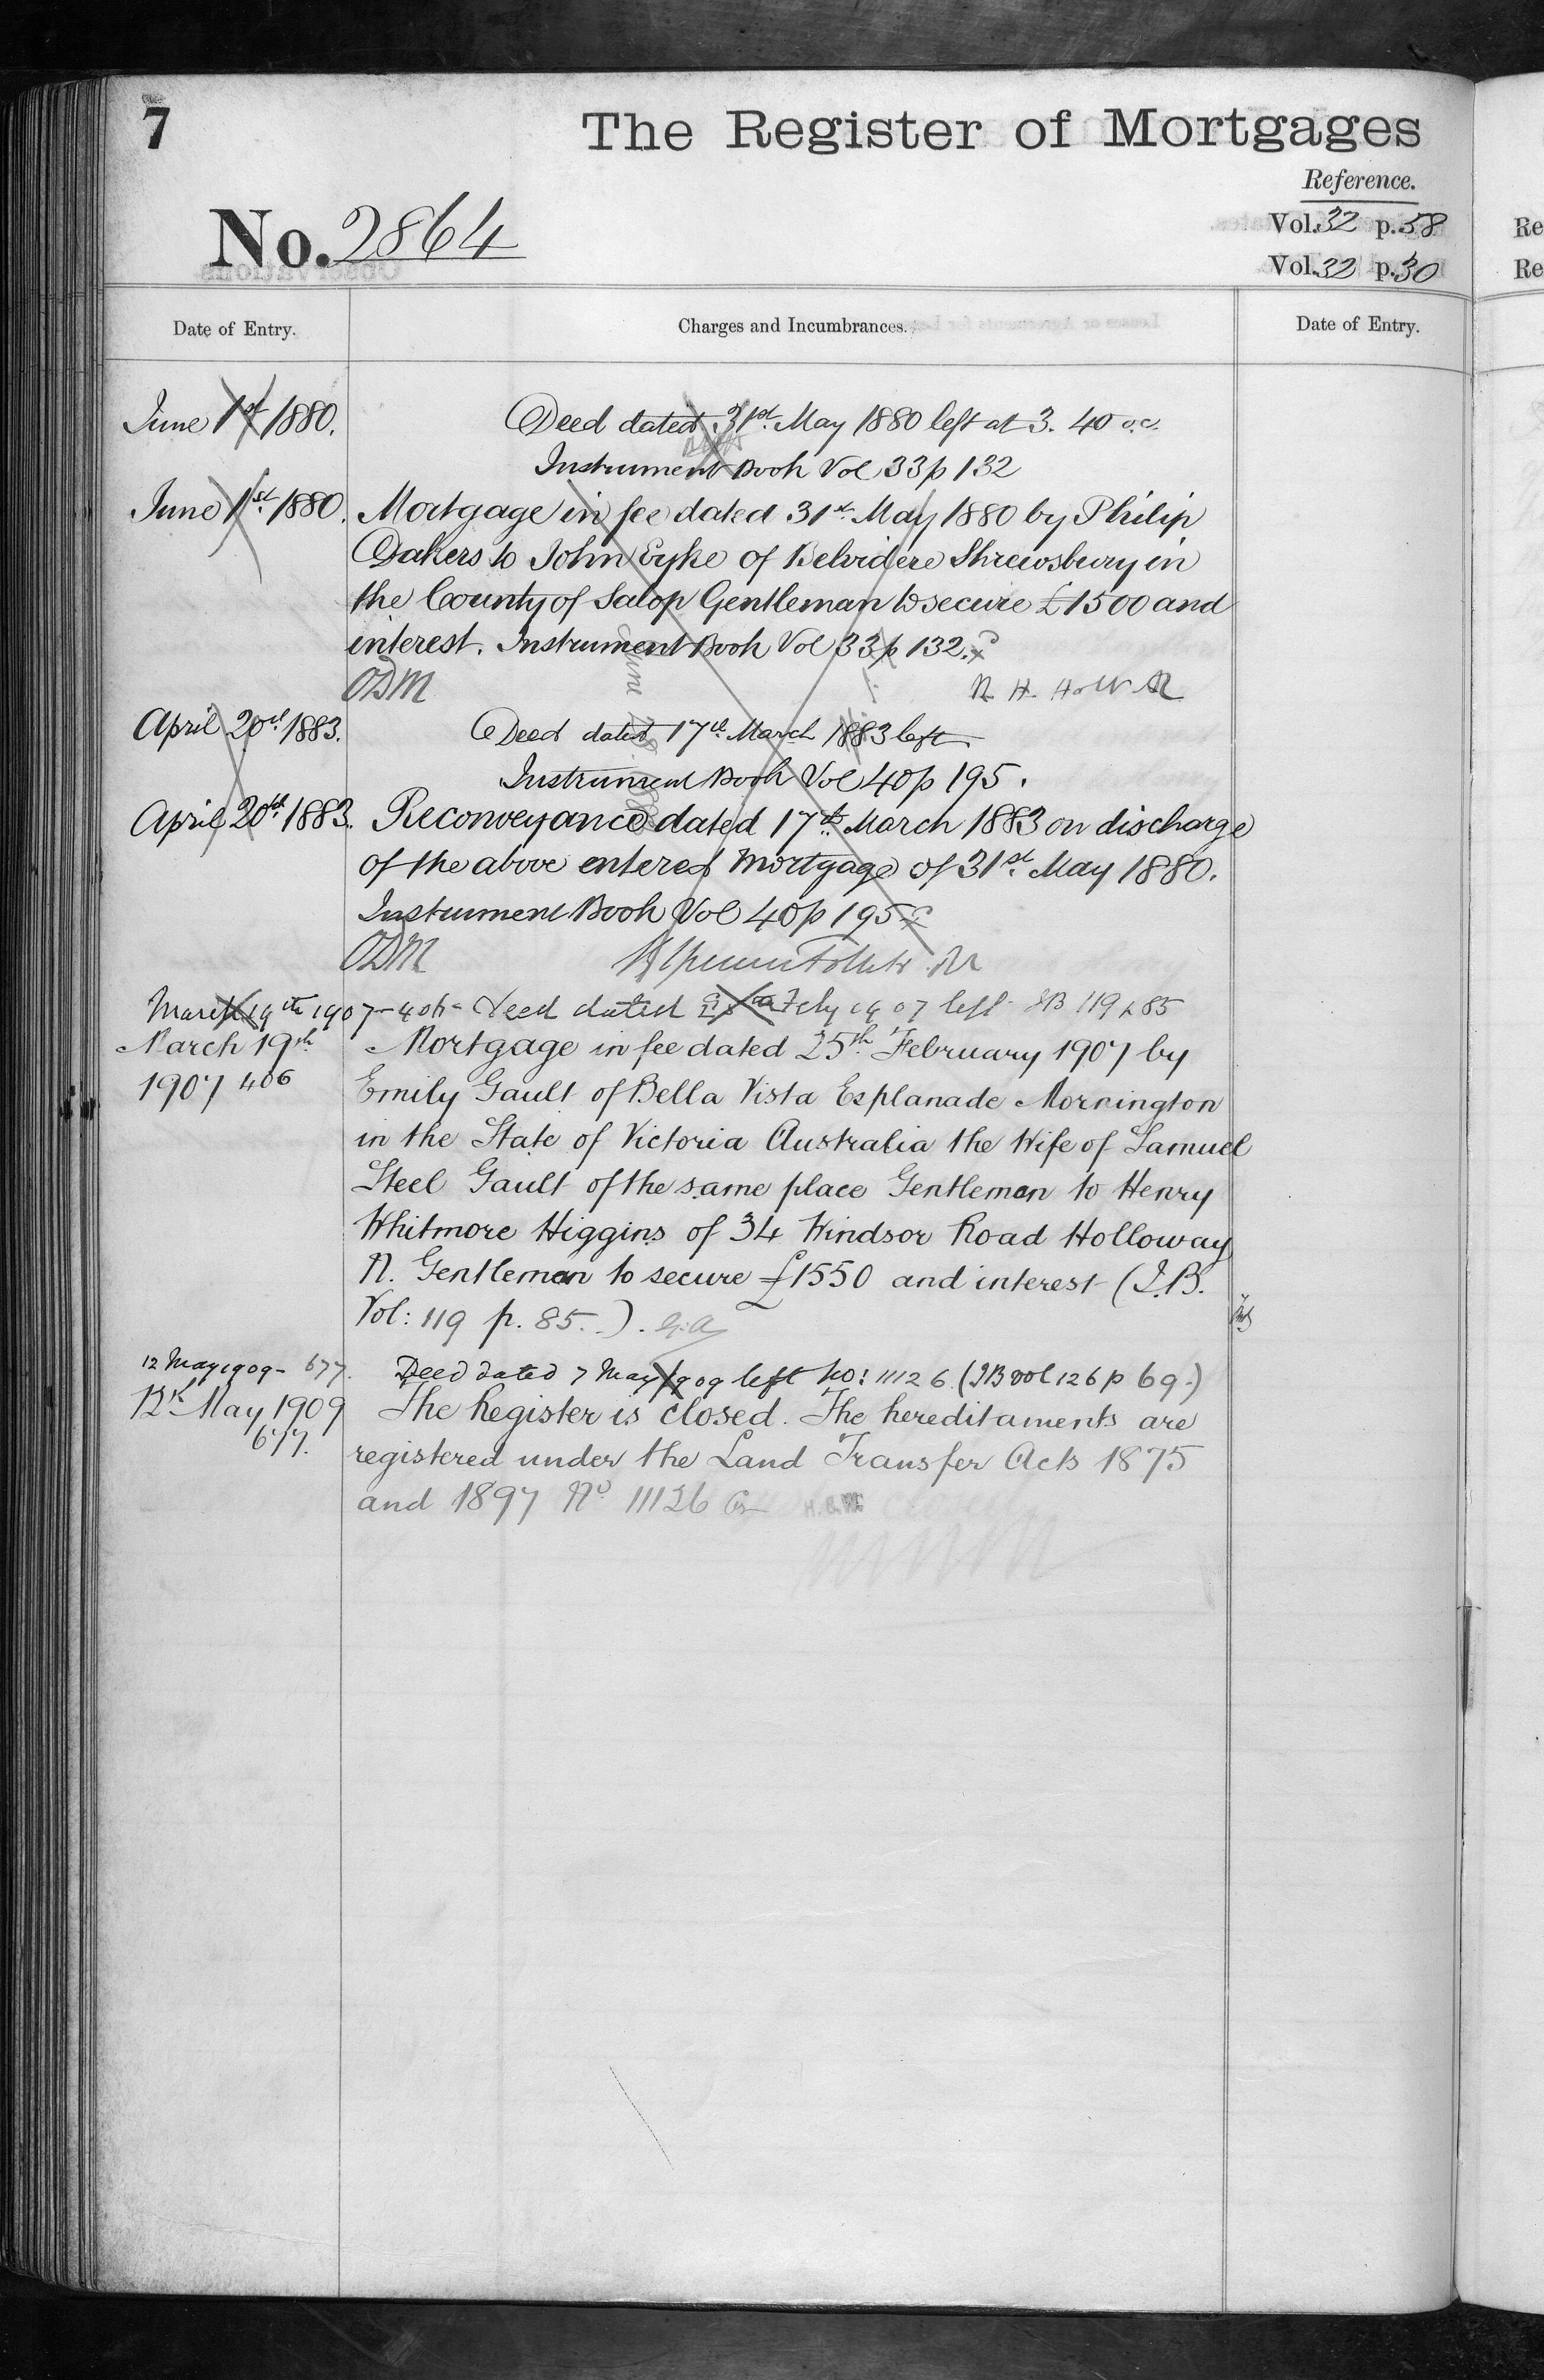 7
The Register of Mortgages
Reference.
No. 2864
Vol. 32 p. 58
Vol. 32 p. 30
Re
Re
Date of Entry.
Charges and Incumbrances.
Date of Entry.
June 1st 1880.
Deed dated 31st May 1880 left at 3. 40
Instrument Book Vol 33 p 132
June 1st 1880. Mortgage in fee dated 31st May 1880 by Philip
Dakers to John Eyke of Belvidere Shrewsbury in
the County of Salop Gentleman to secure £1500 and
interest. Instrument Book Vol 33 p 132.
ODM
April 20th 1883.
Deed dated 17th March 1883 left
Instrument Book Vol 40 p 195.
April 20th 1883. Reconveyance dated 17th March 1883 on discharge
of the above entered Mortgage of 31st May 1880.
Instrument Book Vol 40 p 195
ODM
March 19th 1907 - 406 - Deed dated Feby 1907 left IB 119 p 85
March 19th 1907 406
Mortgage in fee dated 25th February 1907 by
Emily Gault of Bella Vista Esplanade Mornington
in the State of Victoria Australia the Wife of Samuel
Steel Gault of the same place Gentleman to Henry
Whitmore Higgins of 34 Windsor Road Holloway
N. Gentleman to secure £1550 and interest (I.B.
Vol: 119 p. 85.).
12 May 1909 - 677. Deed dated 7 May 1909 left No: 11126 (IB vol 126 p 69.)
12th May 1909
677.
The Register is closed. The hereditaments are
registered under the Land Transfer Acts 1875
and 1897 No 111126